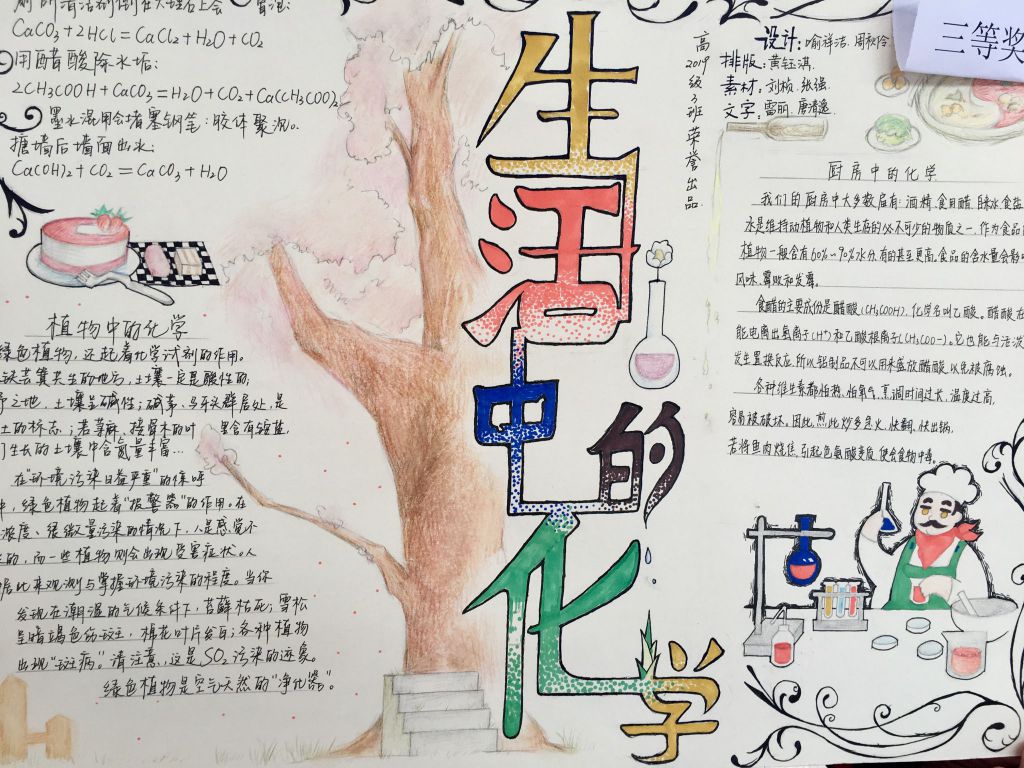 刷所清洁剂倒在大理石上会冒泡:
CaCO₃+2HCl=CaCl₂+H₂O+CO₂
用醋酸除水垢:
2CH₃COOH+CaCO₃=H₂O+CO₂+Ca(CH₃COO)₂
墨水混用会堵塞钢笔:胶体聚沉。
搪墙后墙面出水:
Ca(OH)₂+CO₂=CaCO₃+H₂O
植物中的化学
绿色植物,还起着化学试剂的作用。
土壤一定是酸性的;
之地,土壤呈碱性;碱草、马牙群居处,是
土的标志;荨麻、接骨木的叶里含有铵盐,
们生长的土壤中含氮量丰富…
在"环境污染日益严重"的信呼
中,绿色植物起着"报警器"的作用。在
浓度、很微量污染的情况下,人是感觉不
的,而一些植物则会出现受害症状。人
据此来观测与掌握环境污染的程度。当你
发现在潮湿的气候条件下,苔藓枯死;雪松
呈暗褐色伤斑,棉花叶片发白;各种植物
出现"斑病"。请注意,这是SO₂污染的迹象。
绿色植物是空气天然的"净化器"。
生活中的化学
高2019级3班荣誉出品
设计:喻祥洁.周
排版:黄钰淇.
素材:刘桢.张强.
文字:雷丽.唐清逸.
三等奖
厨房中的化学
我们的厨房中大多数启有:酒精、食用醋、自来水、食盐
水是维持动植物和人类生存的必不可少的物质之一.作为食品的
植物一般含有60%~90%水分.有的甚至更高.食品的含水量会影响
风味、霉败和发霉。
食醋的主要成份是醋酸(CH₃COOH),化学名叫乙酸。醋酸在
能电离出氢离子(H⁺)和乙酸根离子(CH₃COO-)。它也能与活泼
发生置换反应.所以铝制品不可以用来盛放醋酸.以免被腐蚀。
各种维生素都怕热,怕氧气,烹调时间过长,温度过高,
容易被破坏,因此,煎比炒多.急火,快翻,快出锅,
若将鱼肉烧焦,引起色氨酸变质,使会食物中毒。